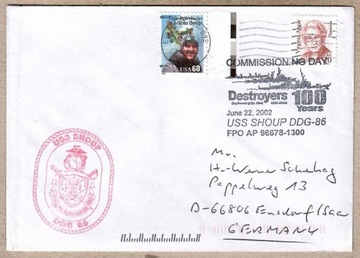 USA 60
COMMISSIONING DAY
Destroyers 100
Years
June 22, 2002
USS SHOUP DDG-86
FPO AP 96678-1300
USS SHOUP
DDG 86
H.-Werner
Pappelweg 13
D-66806 Ensdorf/Saar
GERMANY